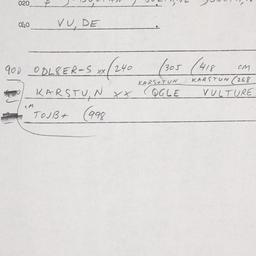 020
040 VU, DE .
900 ODL8ER-S xx (240 (305 (418 CM
KARSTUN KARSTUN (268
KARSTU, N xx (QGLE VULTURE
CM
TOJB+ (998